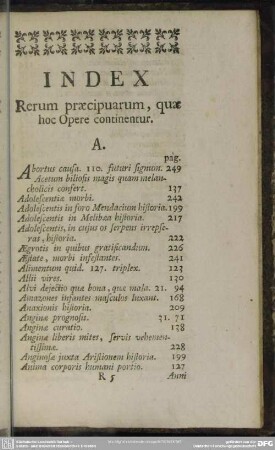 INDEX
Rerum præcipuarum, quæ
hoc Opere continentur.
A.
pag.
Abortus causa. 110. futuri signum. 249
Acetum biliosis magis quam melan-
cholicis confert. 137
Adolescentiæ morbi. 242
Adolescentis in foro Mendacium historia. 199
Adolescentis in Melibœa historia. 217
Adolescentis, in cujus os serpens irrepse-
rat, historia. 222
Ægrotis in quibus gratificandum. 226
Æstate, morbi infestantes. 241
Alimentum quid. 127. triplex. 123
Allii vires. 130
Alvi dejectio quæ bona, quæ mala. 21. 94
Amazones infantes masculos luxant. 168
Anaxionis historia. 209
Anginæ prognosis. 31. 71
Anginæ curatio. 138
Anginæ liberis mites, servis vehemen-
tissimæ. 228
Anginosæ juxta Aristionem historia. 199
Anima corporis humani portio. 127
R 5 Anni